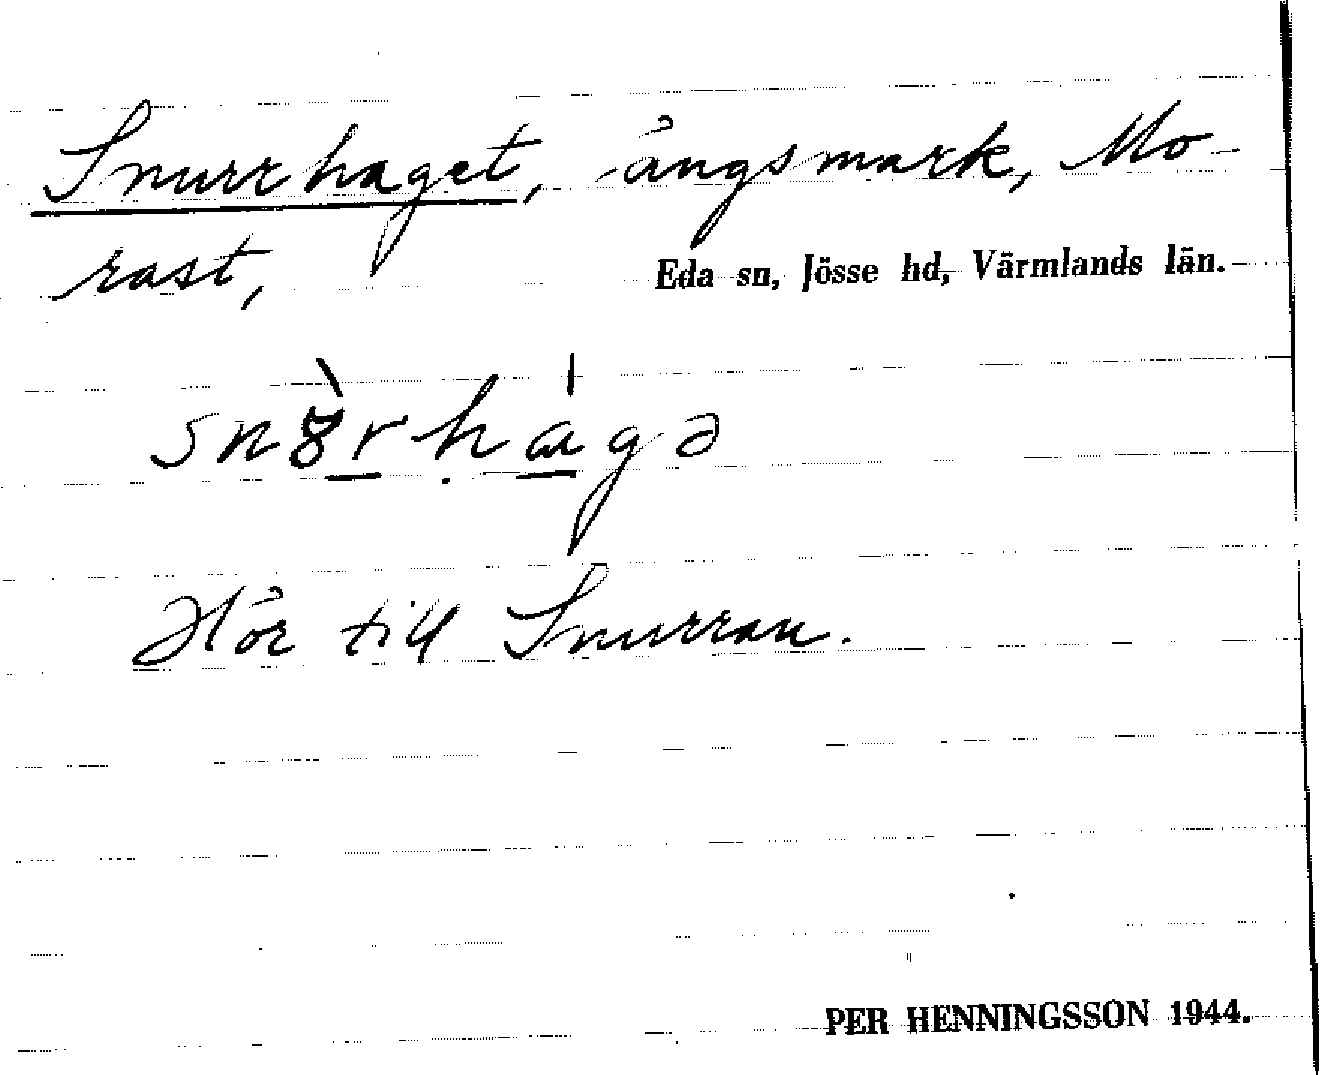 Snurrhaget, ängsmark, Mo-
rast,
Eda sn, Jösse hd, Värmlands län.
sn8̀rhàgə
Hör till Snurran.
PER HENNINGSSON 1944.